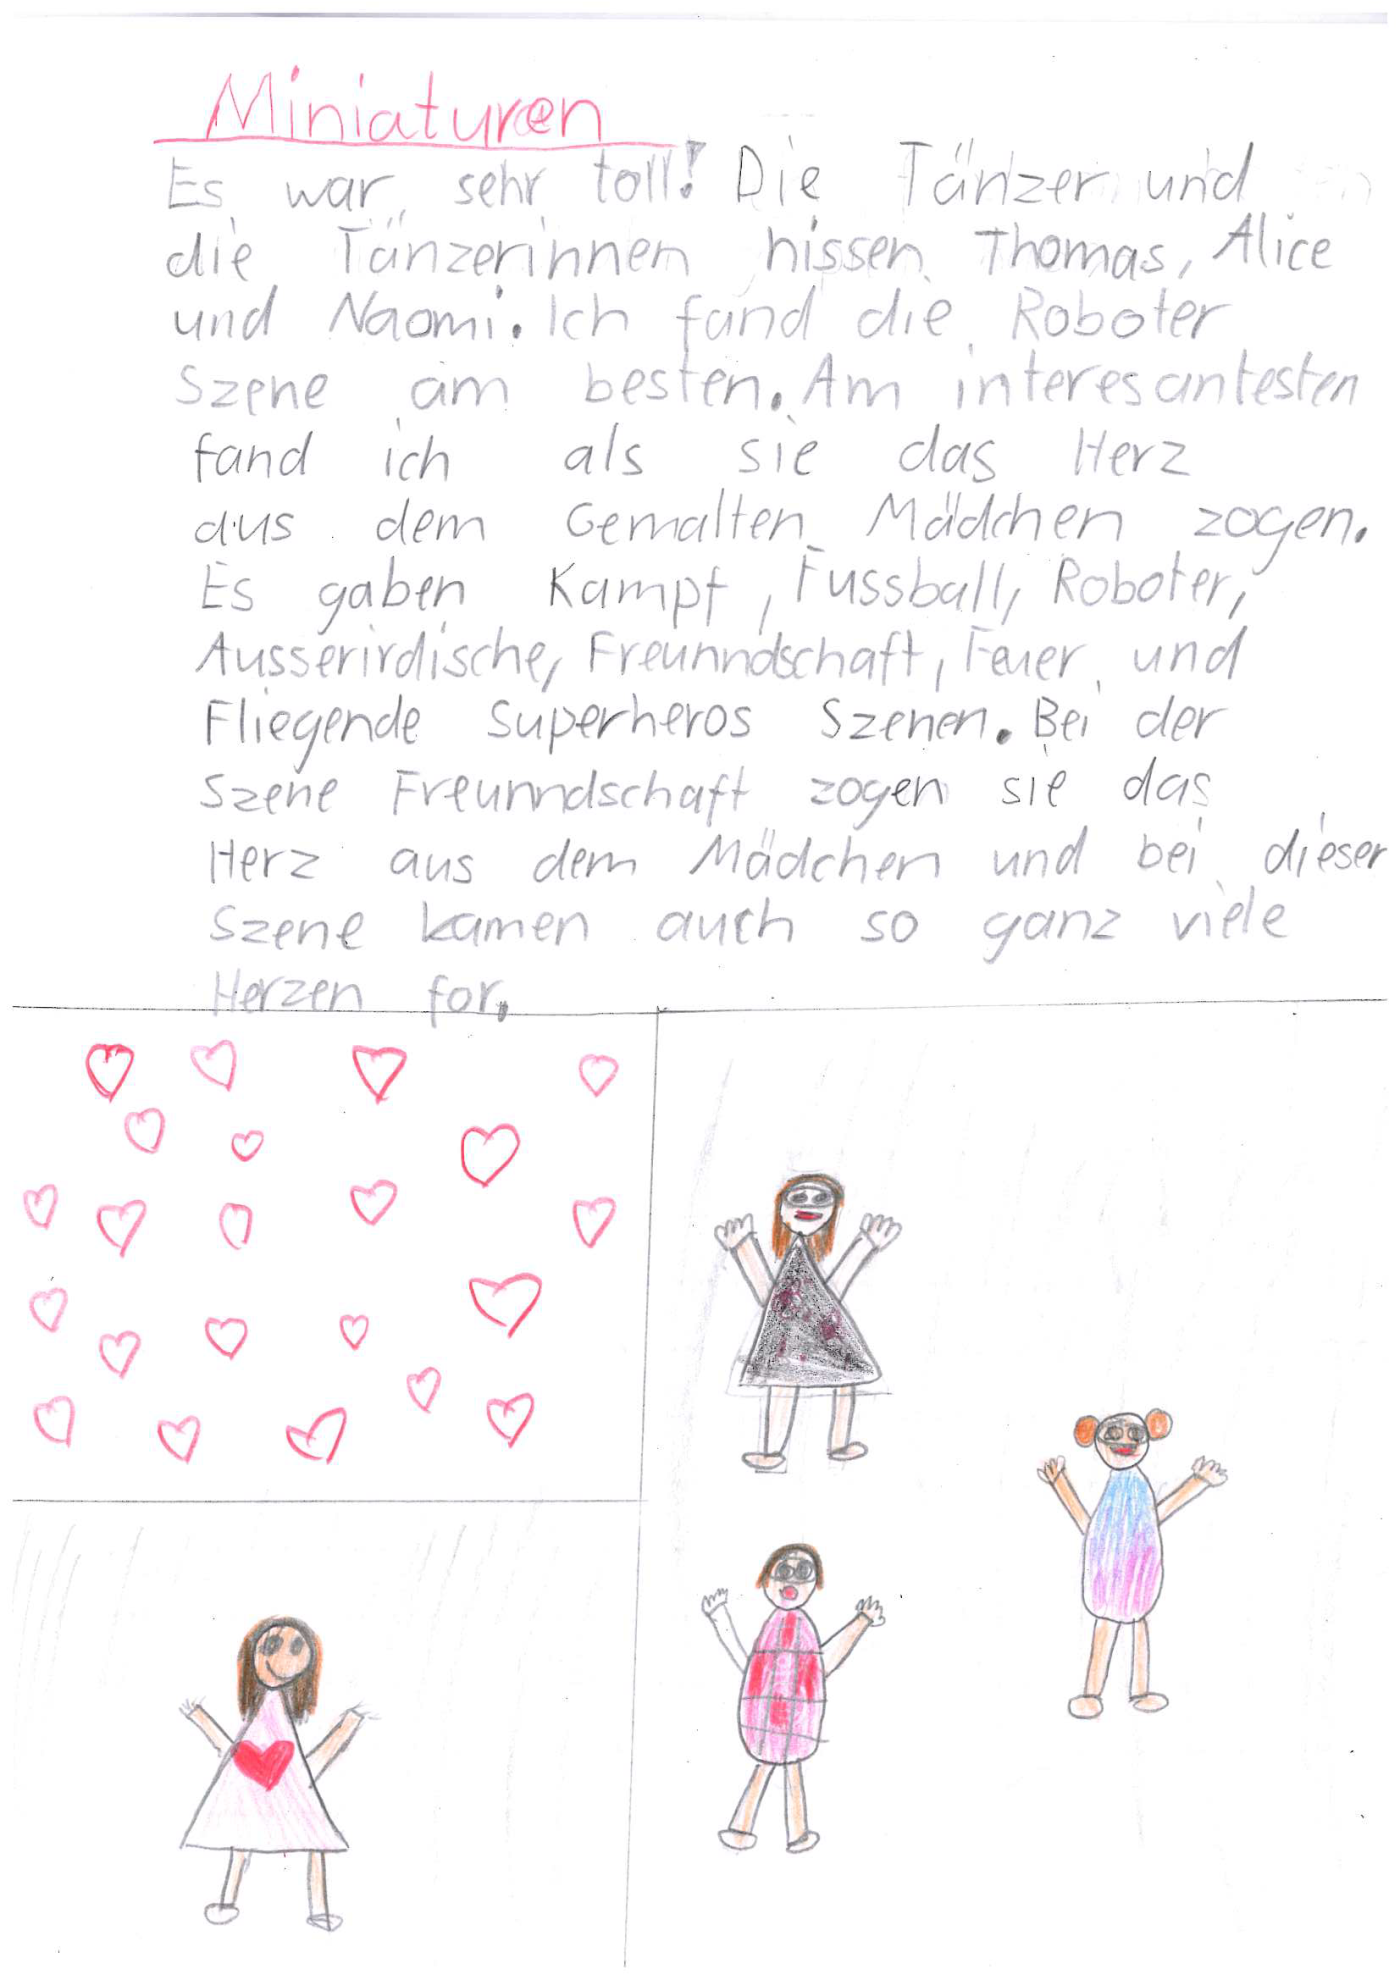 Miniaturen
Es war sehr toll! Die Tänzer und
die Tänzerinnen hissen Thomas, Alice
und Naomi. Ich fand die Roboter
Szene am besten. Am interesantesten
fand ich als sie das Herz
aus dem Gemalten Mädchen zogen.
Es gaben Kampf, Fussball, Roboter,
Ausserirdische, Freunndschaft, Feuer und
Fliegende Superheros Szenen. Bei der
Szene Freunndschaft zogen sie das
Herz aus dem Mädchen und bei dieser
Szene kamen auch so ganz viele
Herzen for.